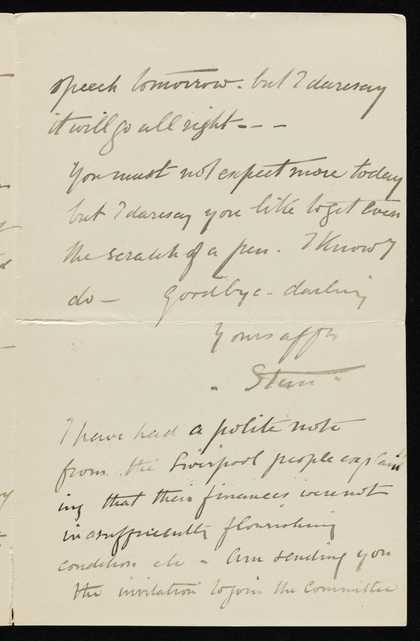 speech tomorrow. but I daresay
it will go all right - - -
You must not expect more today
but I daresay you like to get even
the scratch of a pen. I know I
do - goodbye - darling
Yours affte
I have had a polite note
from the Liverpool people explain
ing that their finances were not
in a sufficiently flourishing
condition etc - Am sending you
the invitation to join the Committee